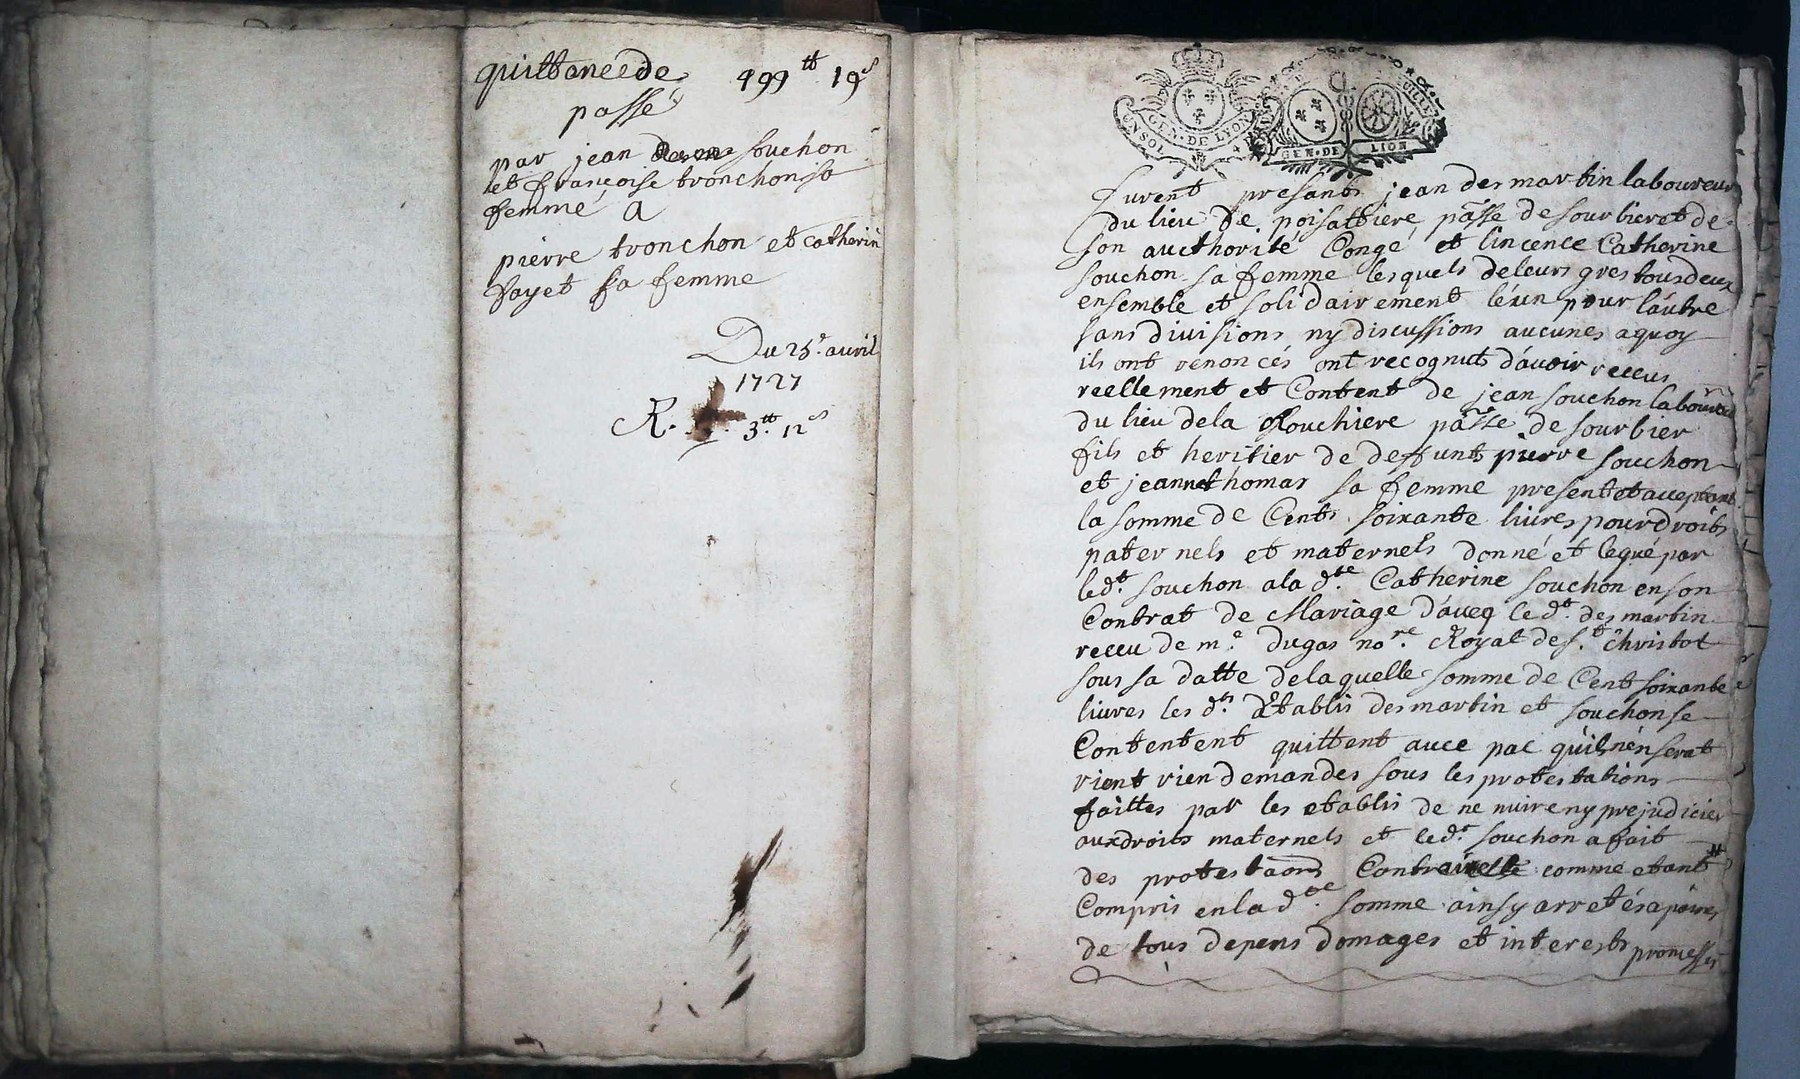 quittanc de 499ᵗᵗ 19ˢ
passé
par jean souchon
et françoise tronchon sa
femme a
pierre tronchon et catherin
fayet sa femme
Du 25ᵉ. avril
1727
R. 3.ᵗᵗ 12ˢ
GEN. DE LYON
GEN. DE LION
furent presants jean desmartin laboureur
du lieu de poisattiere, pa͠sse de sourbier et de
son aucthorité Congé et lincence Catherine
souchon sa femme lesquels de leurs gres tous deux
ensemble et solidairement léun pour láutre
sans divisions ny discussions aucunes a quoy
ils ont renoncés ont recognuts dávoir receus
reellement et Content de jean souchon laboureur
du lieu de la Rouchiere pa͠sse de sourbier
fils et heritier de deffunts pierre souchon
et jeanne thomas sa femme present et acceptant
la somme de Cents soixante livres pour droits
paternels et maternels donné et legué par
led.ᵗ souchon a la d.ᵗᵉ Catherine souchon en son
Contrat de Mariage dáveq le d.ᵗ desmartin
receu de m.ᵉ Dugas no.ʳᵉ Royal de s.ᵗ christot
sous sa datte de laquelle somme de Cent soixante
livres les d.ᵗˢ Etablis desmartin et souchon se
Contentent quittent avec pac quil nén serat
rient rien demandes sous les protestations
faittes par les etablis de ne nuire ny prejudicier
aux droits maternels et le d.ᵗ souchon a fait
des protestaons comme etant
Compris en la d.ᵗᵉ somme ainsy arretés a peines
de tous depens domages et interests promesses